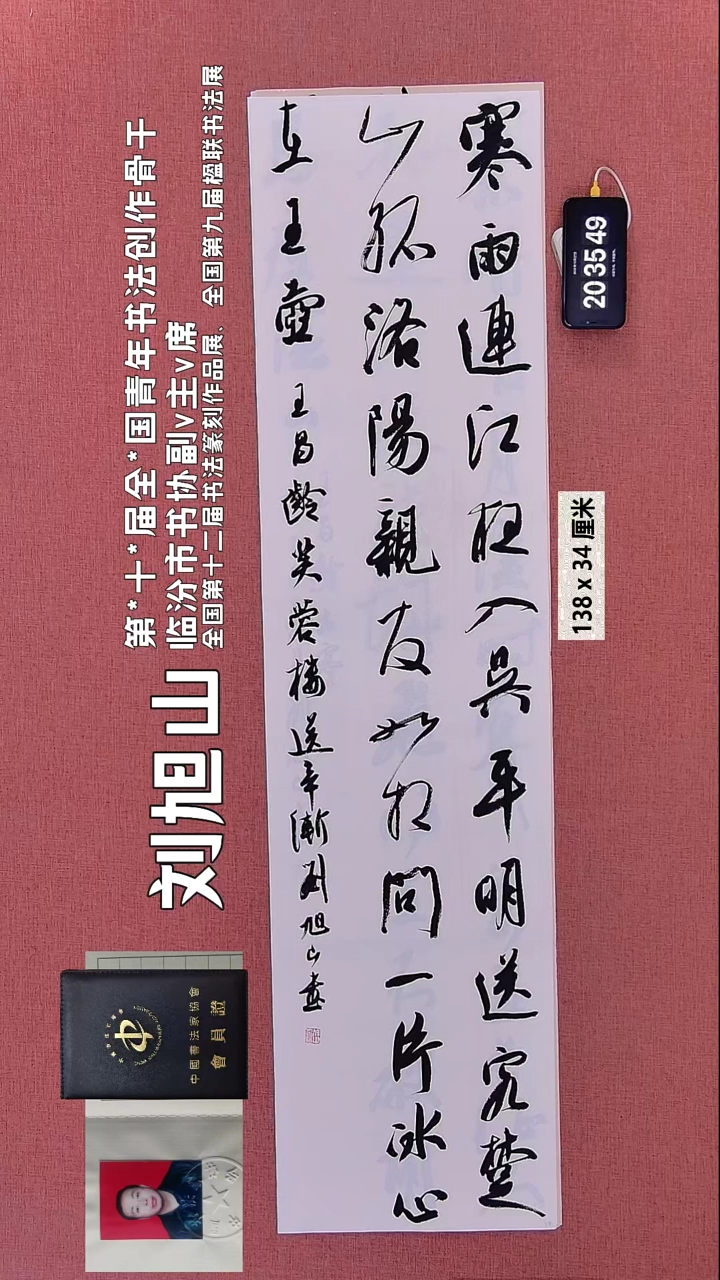 寒雨連江夜入吳平明送客楚
山孤洛陽親友如相問一片冰心
在玉壺 王昌齡芙蓉樓送辛漸劉旭山書
刘旭山
第*十*届全*国青年书法创作骨干
临汾市书协副v主v席
全国第十二届书法篆刻作品展、全国第九届楹联书法展
中國書法家協會
會員證
20 35 49
138 x 34 厘米